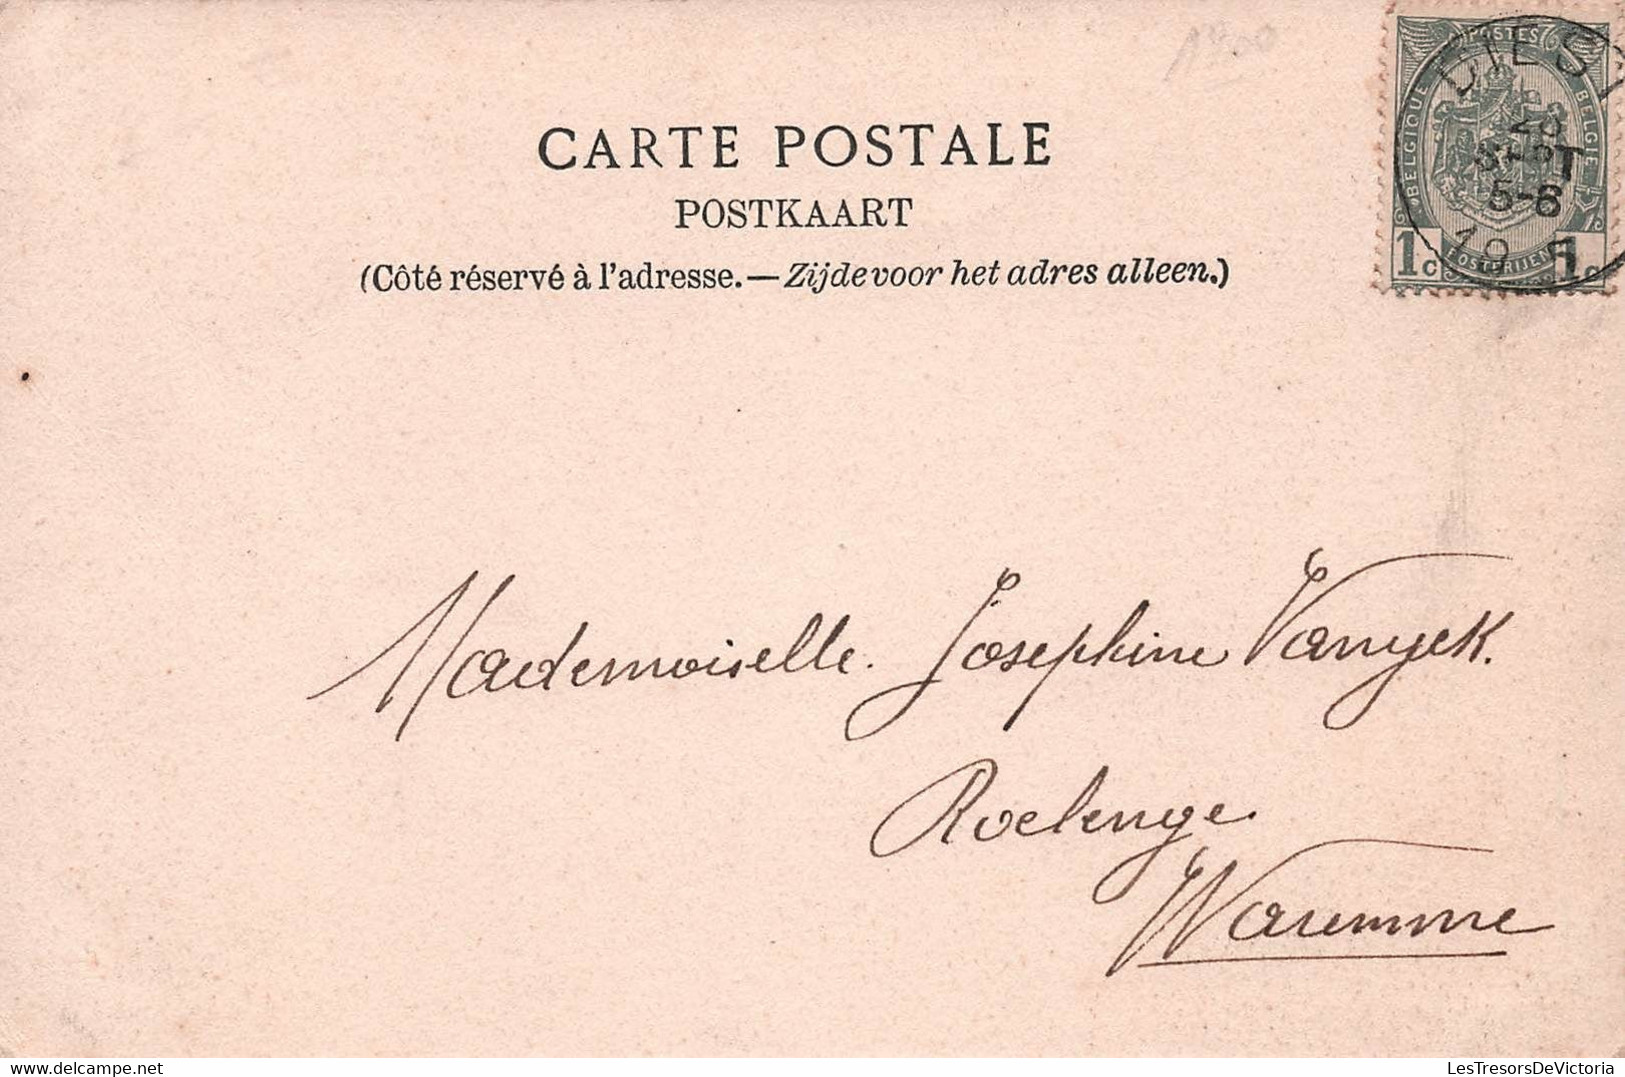 1900
CARTE POSTALE
POSTKAART
(Côté réservé à l'adresse.—Zijde voor het adres alleen.)
POSTES
BELGIQUE
BELGIË
POSTERIJEN
1c
1c
DIEST
SEPT
5-6
Mademoiselle. Josephine Vanyek.
Roelenge.
Waremme
LesTresorsDeVictoria